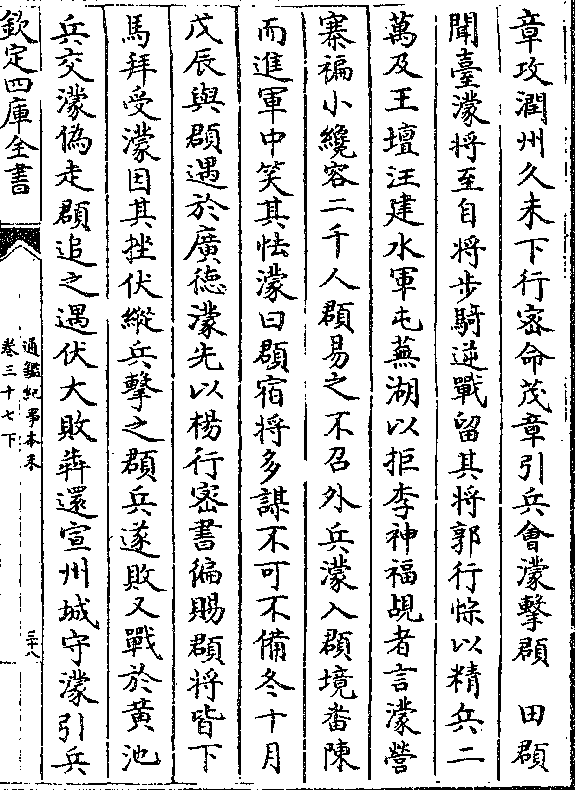 章攻潤州久未下行密命茂章引兵會濛擊頵　田頵
聞臺濛將至自將步騎逆戰留其將郭行悰以精兵二
萬及王壇汪建水軍屯蕪湖以拒李神福覘者言濛營
寨褊小纔容二千人頵易之不召外兵濛入頵境畨陳
而進軍中笑其怯濛曰頵宿將多謀不可不備冬十月
戊辰與頵遇於廣德濛先以楊行密書徧賜頵將皆下
馬拜受濛因其挫伏縱兵擊之頵兵遂敗又戰於黃池
兵交濛偽走頵追之遇伏大敗犇還宣州城守濛引兵
欽定四庫全書
通鑑紀事本末
卷三十七下
三十八